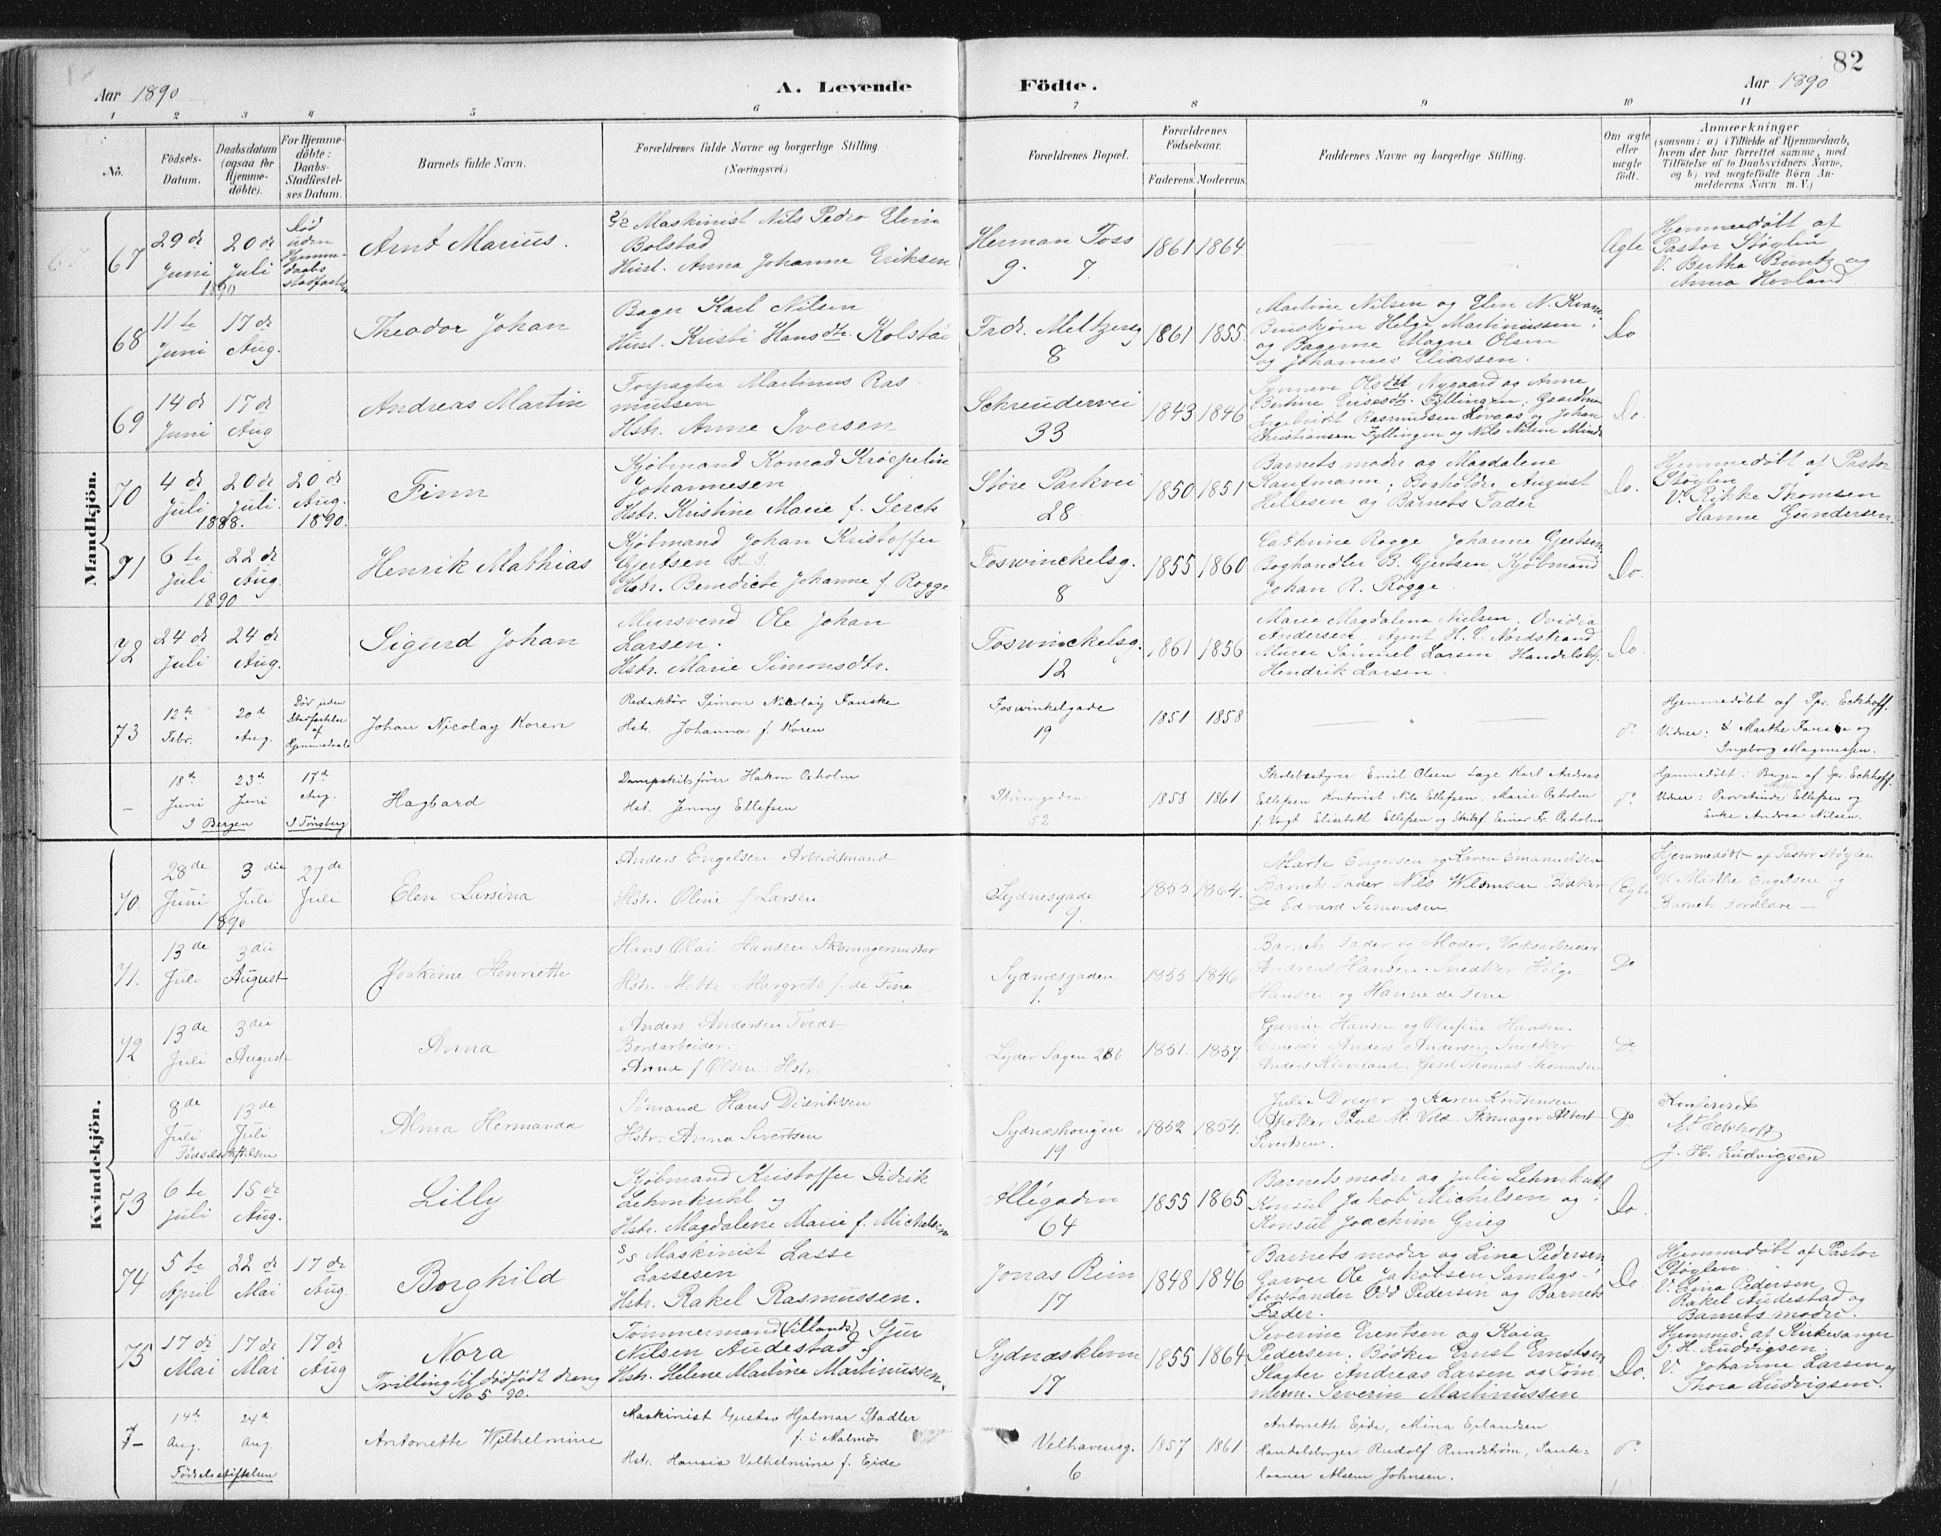 82
Aar 1890
A. Levende
Födte.
Aar 1890
1 2 3 4 5 6 7 8 9 10 11
No.
Födsels-
Datum.
Daabsdatum
(ogsaa for
Hjemme-
döbte).
For Hjemme-
döbte:
Daabs-
Stadfæstel-
ses Datum.
Barnets fulde Navn.
Forældrenes fulde Navne og borgerlige Stilling
(Næringsvei.)
Forældrenes Bopæl.
Forældrenes
Födselsaar.
Faderens. Moderens.
Faddernes Navne og borgerlige Stilling.
Om ægte
eller
uægte
födt.
Anmærkninger
(saasom: a) i Tilfælde af Hjemmedaab,
hvem der har forrettet samme, med
Tilföielse af to Daabsvidners Navne,
og b) ved uægtefödte Börn An-
melderens Navn m. V.)
Mandkjön.
67
29 de
Juni
1890
20 de
Juli
Död
uden
Hjemme-
daabs
Arnt Marius.
Maskinist Nils Pedro Elvin
Bolstad
Hust. Anna Johanne Eriksen
Herman Foss
9. 7.
1861 1864
Ægte
Hjemmedöbt af
Pastor Støylen
V. Bertha Buntz og
Anna Hovland
68
11 te
Juni
17 de
Aug.
Theodor Johan
Bager Karl Nilsen
Hust. Kristi Hansdtr. Kolstai
Frdr. Meltzersg
8
1861 1855.
Martine Nilsen og Elen N.
Helge Martinussen,
og Bagerne Magne Olsen
og Johannes Eliassen.
Do
69
14 de
Juni
17 de
Aug
Andreas Martin
Forpagter Martinus Ras
mussen
Hstr. Anne Iversen
Schreudervei
33
1843 1846
Synneve Olsdtr Nygaard og Anne
Bertine
Ingebrigt Rasmussen Løvaas og Johan
Christiansen Fyllingen og Nils Nilsen Minde
Do.
70
4 de
Juli
1888.
20 de
Juli.
20 de
Aug.
1890.
Finn
Kjöbmand Konrad Kröepelin
Johannesen
Hstr. Kristine Marie f. Gerck
Störe Parkvei
28
1850 1851
Barnets moder og Magdalene
Kaufmann; Bogholdr. August
Hellesen og Barnets Fader
Do.
Hjemmedöbt af Pastor
Støylen
V. Rikke Thomsen
Hanne Gundersen.
71
6 te
Juli
1890
22 de
Aug.
Henrik Mathias
Kjöbmand Johan Kristoffer
Gjertsen
Hstr. Benedicte Johanne f. Rogge
Foswinckelsg.
8
1855 1860
Cathrine Rogge Johanne Gjertsen,
Boghandler B. Gjertsen, Kjöbmand
Johan R. Rogge
Do.
72
24 de
Juli
24 de
Aug.
Sigurd Johan
Mursvend Ole Johan
Larsen.
Hstr. Marie Simonsdtr.
Foswinckelsg.
12
1861 1856
Marie Magdalena Nilsen, Ovidia
Andersen, Agent H. C. Nordstrand
Murer Samuel Larsen Handelsbg.
Hendrik Larsen.
Do.
73
12te
Febr.
20 d
Aug.
Død uden
Stadfæstelse
af
Hjemmedaab
Johan Nicolay Koren
Redaktör Simon Nicolaig Fauske
Hst. Johanna f. Koren
Foswinkelgade
19
1851 1858
— " —
d°
Hjemmedöbt af Spr. Eckhoff.
Vidner: Marthe Fauske og
Ingeborg Magnussen.
–
18 de
Juni
23 de
Juni
I Bergen
17 de
Aug.
I Tønsberg
Hagbard
Dampskibsförer Hakon Oxholm
Hst. Jenny Ellefsen
Strømgaden
52
1858 1861
Skolebestyrer Emil Olsen Sage Karl Andreas
Ellefsen Kontorist Nils Ellefsen, Marie Oxholm
f. Vogt Elisabeth Ellefsen og Skibsf. Einar Fr. Oxholm
d°
Hjemmedöbt i Bergen af Spr. Eckhoff.
Vidner: Provstinde Ellefsen og
Enke Andrea Nilsen.
Kvindekjön.
70
28 de
Juni
1890
3 die
Juli
27 de
Juli
Elen Lursina
Anders Engelsen Arbeidsmand
Hstr. Oline f. Larsen
Sydnesgade
9.
1855 1864.
Marte Engelsen og Karen Emanuelsen
Barnets Fader. Nils Wilsmsen Bödker
D° Edvard Simonsen
Ægte
Hjemmedöbt af Pastor Støylen
V. Marthe Engelsen og
Barnets Forældre —
71.
13 de
Juli
3 die
August
Joakime Henriette
Hans Olai Hansen Skomagermester
Hstr. Mette Margrete f. de Fine
Sydnæsgaden
1.
1855 1846
Barnets Fader og Moder, Værksarbeider
Andreas Hansen. Snedker Helge
Hansen og Hanne de Fine
D°
72
13 de
Juli
3 die
August
Anna
Anders Andersen Tvedt
Bordarbeider.
Anna f Olsen Hstr.
Lyder Sagen 26
1851. 1857.
Gurine Hansen og Olufine Hansen.
Anders Andersen Snedker
Anders Kleveland. Gesel Thomas Thomasen
D°
8 de
Juli
13 de
Juli
Födselsstiftelsen
Alma Hermanda
Sömand Hans Didriksen
Hstr. Anna Sivertsen
Sydneshougen
19
1852 1854.
Julia Dreyer og Karen Kristensen
Apotker Paul M. Vold. Skomager Albert
Sivertsen.
D°
Konfereret
Eckhoff
J. H. Ludvigsen
73
6 te
Juli
15 de
Aug.
Lilly
Kjöbmand Kristoffer Didrik
Lehmkuhl og
Hstr. Magdalene Marie f. Michelsen
Allégaden
64
1855 1865
Barnets moder og Julie Lehmkuhl
Konsul Jakob Michelsen og
Konsul Joachim Grieg
Do.
74
5 te
April
22 de
Mai
17 de
Aug.
Borghild
S/S Maskinist Lasse
Lassesen
Hstr. Rakel Rasmussen.
Jonas Reim
17
1848 1846
Barnets moder og Lina Pedersen,
Garver Ole Jakobsen, Samlags-
forstander Odd Pedersen og Barnets
Fader.
Do.
Hjemmedöbt af Pastor
Støylen.
V. Lina Pedersen
Rakel Audestad og
Barnets moder.
75
17 de
Mai
17 de
Mai
17 de
Aug
Nora
Tvilling til dödfödt dreng
No 5 90.
Tömmermand (Sillands) Sjur
Nilsen Audestad og
Hstr. Helene Martine Martinussen.
Sydnæskleven
17
1855 1864
Severine Erentsen og Kaia
Pedersen. Bödker Ernst Ernstsen
Slagter Andreas Larsen og Töm-
merm. Severin Martinussen
Do.
Hjemmed. af Kirkesanger
J. H. Ludvigsen
V. Johanne Larsen og
Thora Ludvigsen.
7-
14de
Aug.
24 d
Aug.
Födselsstiftelsen
Antonette Wilhelmine
Maskinist Gustav Hjalmar Stadler
f. i Malmö
Hst. Hansia Vilhelmine f. Eide
Velhavensg.
6
1857 1861
Antonette Eide, Mina Erlandsen
Handelsborger Rudolf Rundström, Sante-
Johnsen.
d°